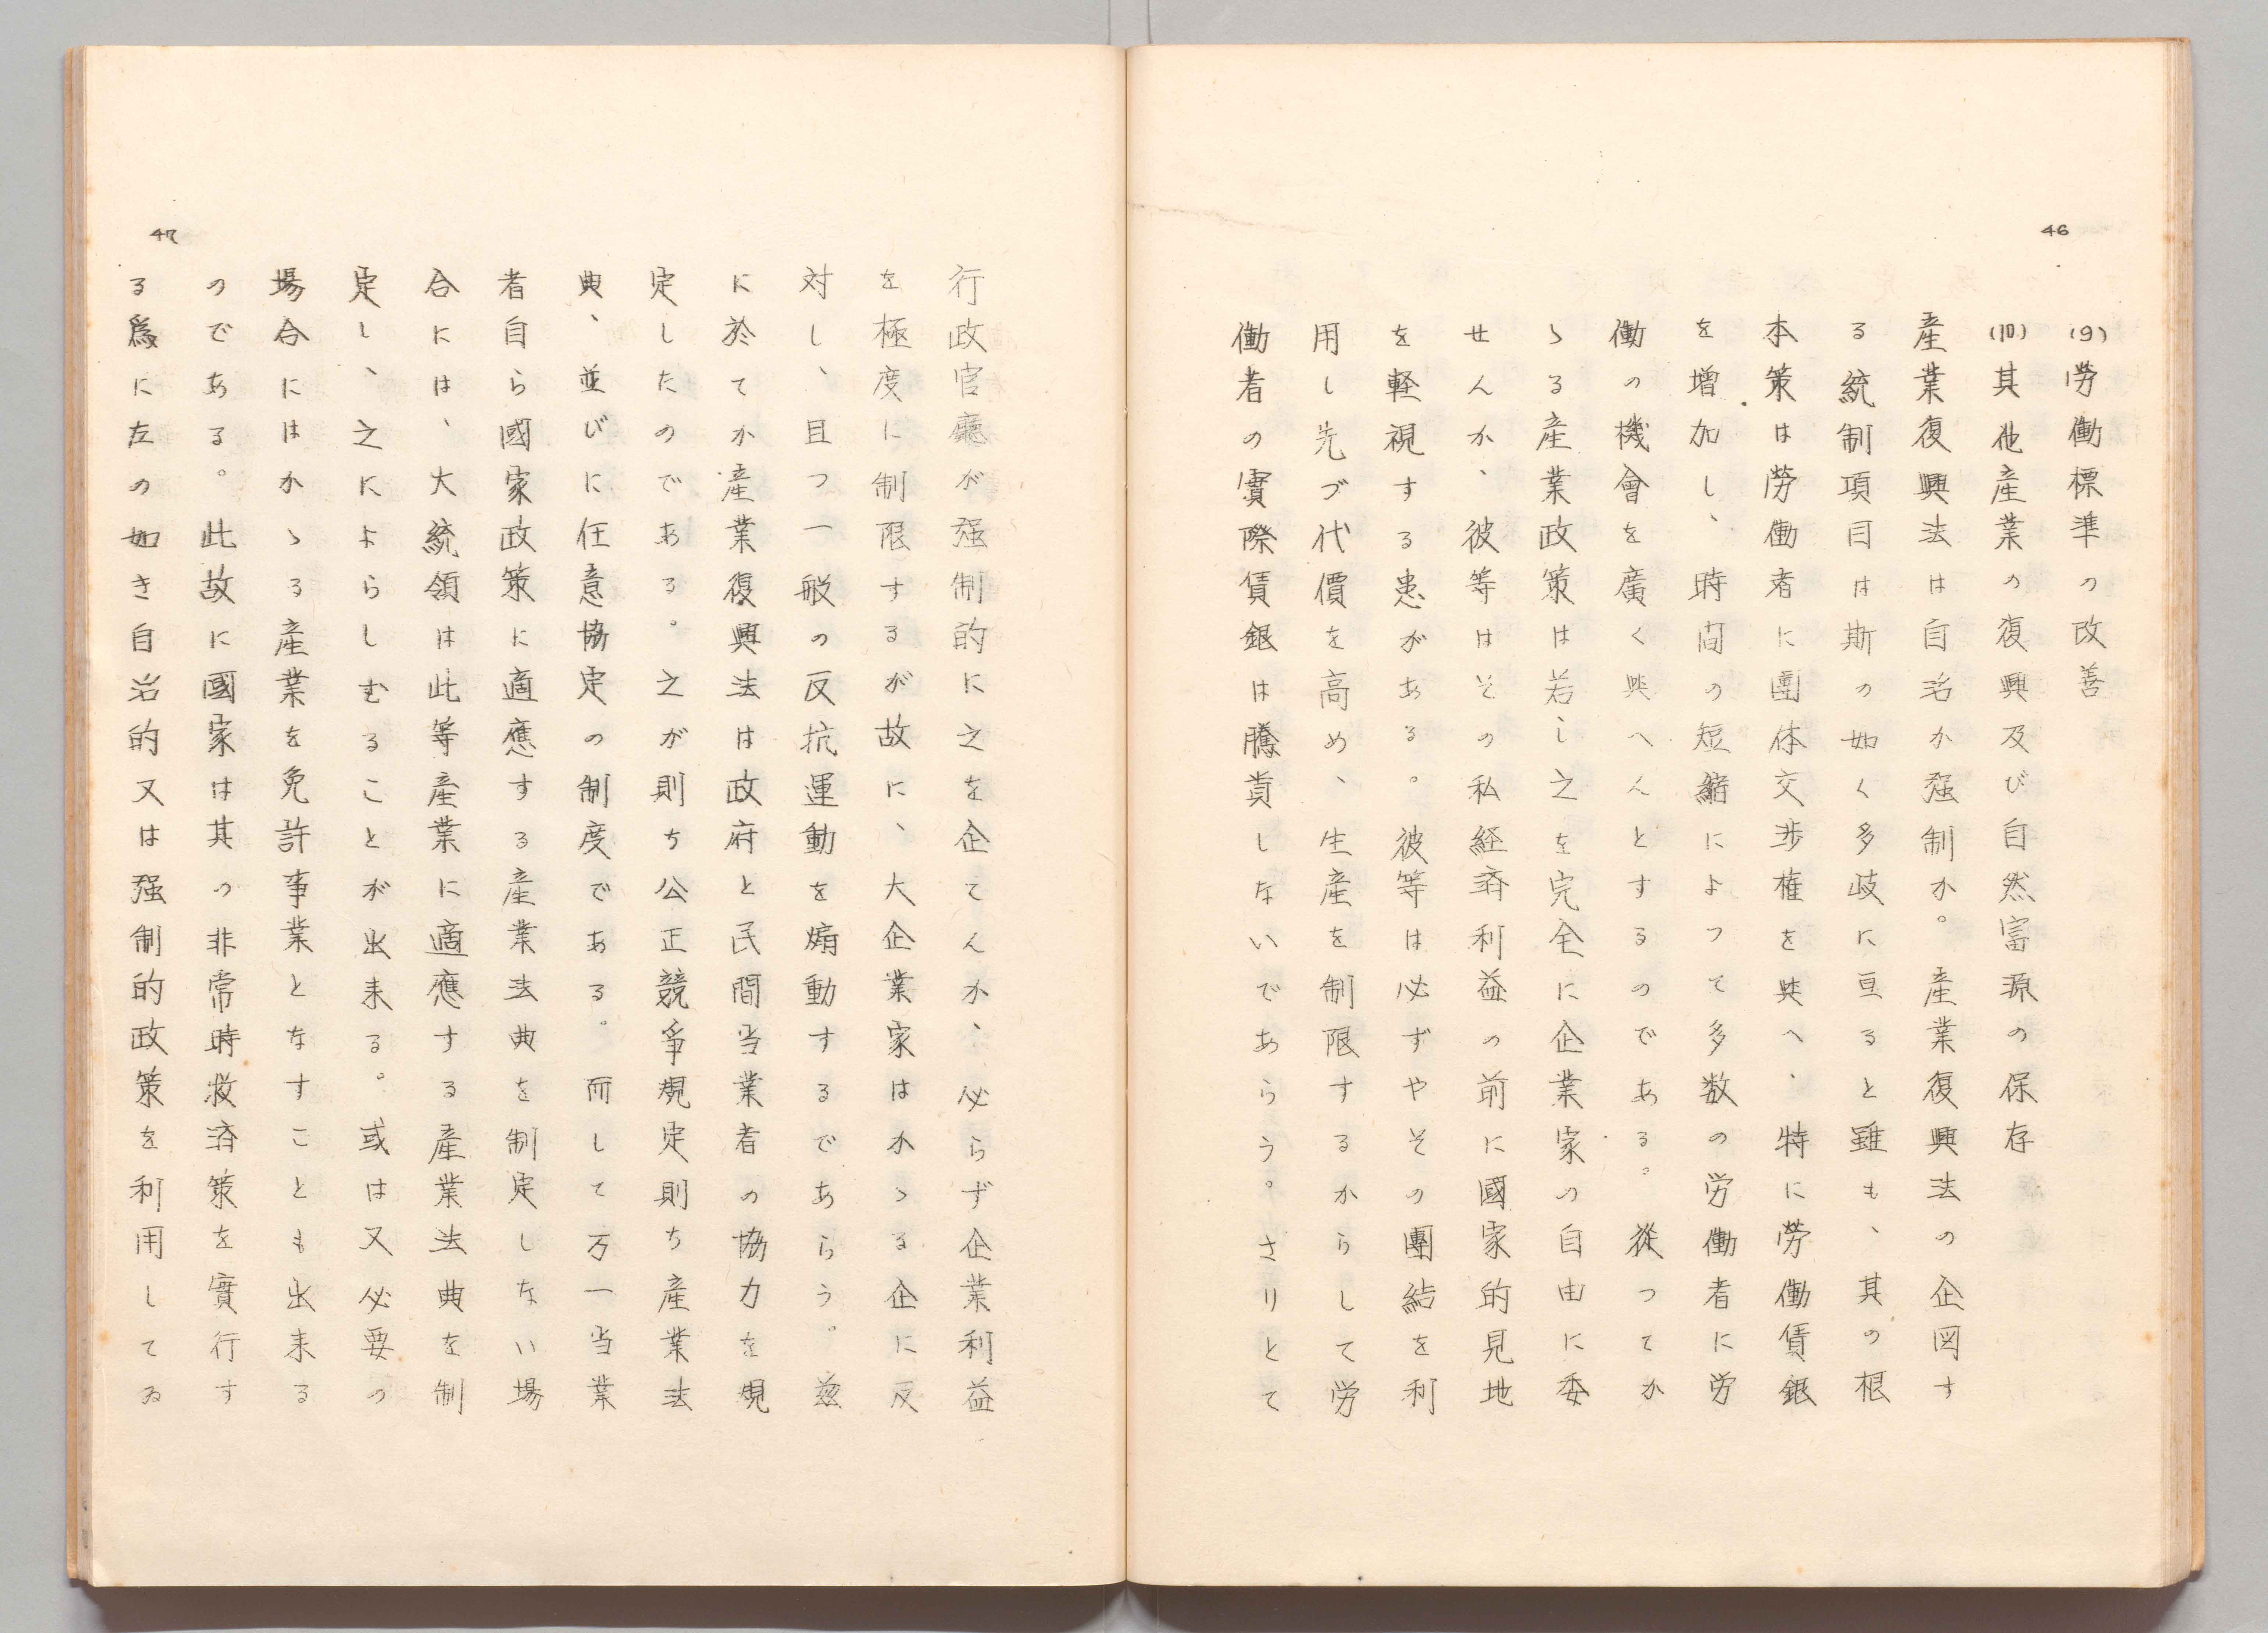 46
(9)労働標準の改善
(10)其他産業の復興及び自然富源の保存
産業復興法は自治か强制か。産業復興法の企図す
る統制項目は斯の如く多岐に亘ると雖も、其の根
本策は労働者に團体交渉権を與へ、特に労働賃銀
を増加し、時間の短縮によつて多数の労働者に労
働の機會を廣く與へんとするのである。從つてか
ゝる産業政策は若し之を完全に企業家の自由に委
せんか、彼等はその私経済利益の前に國家的見地
を軽視する患がある。彼等は必ずやその團結を利
用し先づ代價を高め、生産を制限するからして労
働者の實際賃銀は騰貴しないであらう。さりとて
47
行政官廳が强制的に之を企てんか、必らず企業利益
を極度に制限するが故に、大企業家はかゝる企に反
対し、且つ一般の反抗運動を煽動するであらう。茲
に於てか産業復興法は政府と民間当業者の協力を規
定したのである。之が則ち公正競爭規定則ち産業法
典、並びに任意協定の制度である。而して万一当業
者自ら國家政策に適應する産業法典を制定しない場
合には、大統領は此等産業に適應する産業法典を制
定し、之によらしむることが出来る。或は又必要の
場合にはかゝる産業を免許事業となすことも出来る
のである。此故に國家は其の非常時救済策を實行す
る爲に左の如き自治的又は强制的政策を利用してゐ